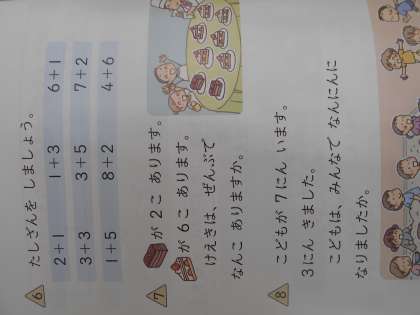 6 たしざんを しましょう。
2+1 1+3 6+1
3+3 3+5 7+2
1+5 8+2 4+6
7 が 2こ あります。
が 6こ あります。
けえきは、ぜんぶで
なんこ ありますか。
8 こどもが 7にん います。
3にん きました。
こどもは、みんなで なんにんに
なりましたか。